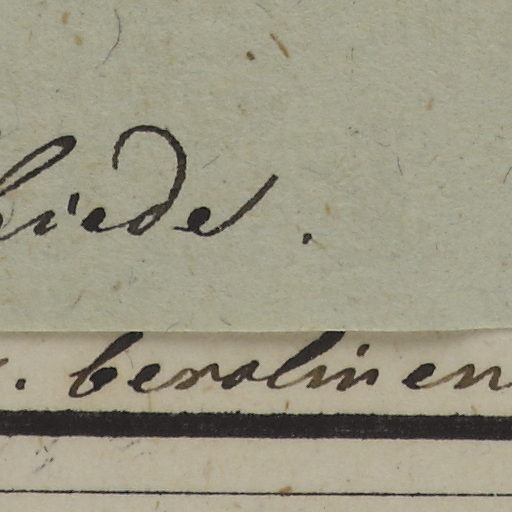 iede.
. berolinen